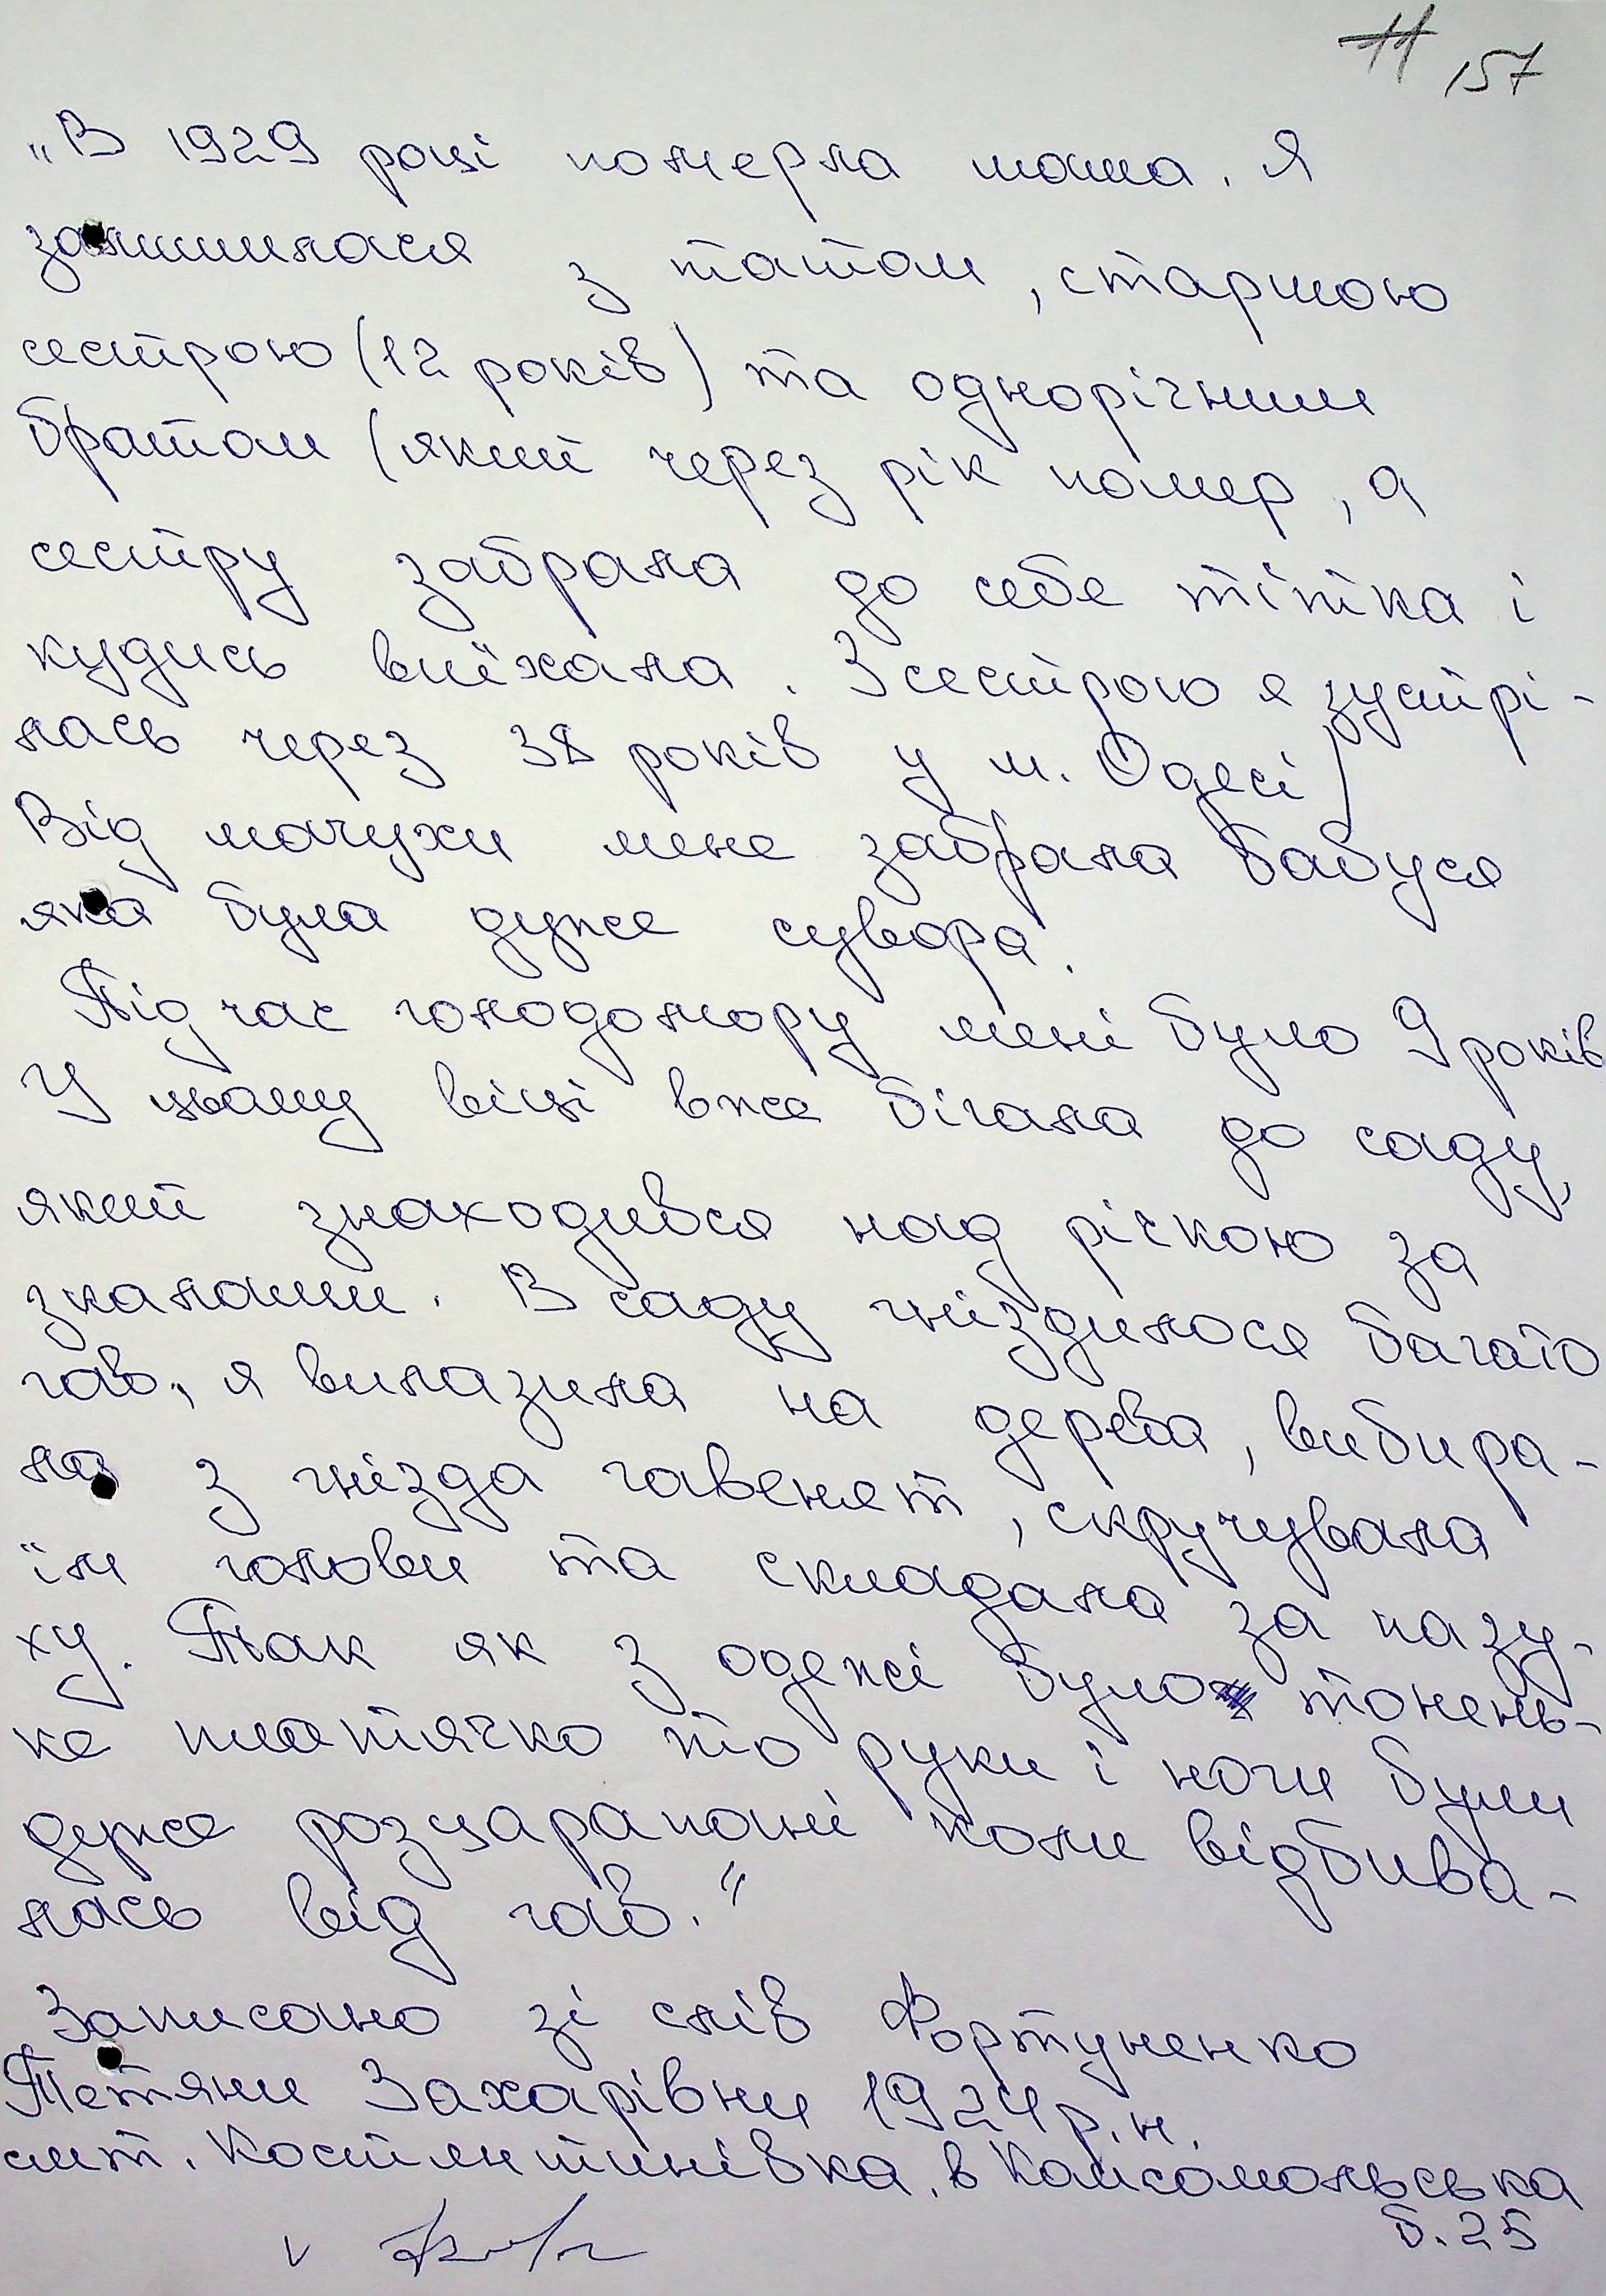 11 157
„В 1929 році померла мама. Я
залишилася з татом, старшою
сестрою (12 років) та однорічним
братом (який через рік помер, а
сестру забрала до себе тітка і
кудись виїхала. З сестрою я зустрі-
лась через 38 років у м. Одесі)
Від мачухи мене забрала бабуся
яка була дуже сувора.
Під час голодомору мені було 9 років
У цьому віці вже бігала до саду,
який знаходився над річкою за
зкалами. В саду гніздилося багато
гав, я вилазила на дерева, вибира-
ла з гнізда гавенят, скручувала
їм голови та складала за пазу-
ху. Так як з одежі було тонень-
ке платтячко то руки і ноги були
дуже розцарапані коли відбива-
лась від гав.“
Записано зі слів Фортуненко
Тетяни Захарівни 1924 р.н.
смт. Костянтинівка, в Комсомольська
б. 25